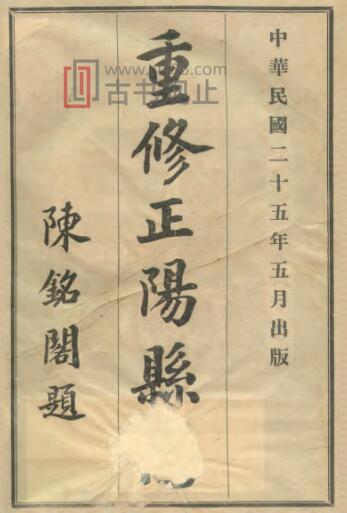 中華民國二十五年五月出版
重修正陽縣
陳銘閣題
古书
止